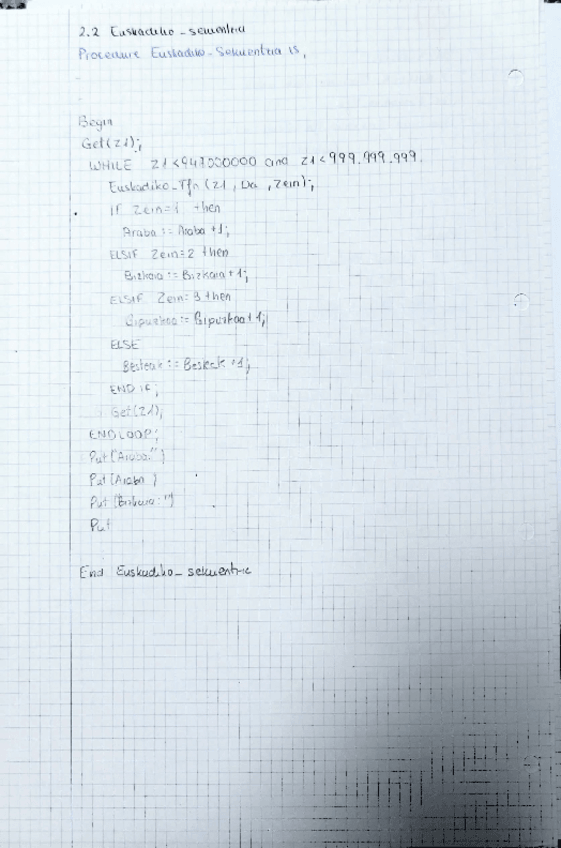 2.2 Euskadiko_sekuentzia
Procedure Euskadiko_Sekuentzia is,
Begin
Get(Z1);
WHILE Z1<947000000 and Z1<999.999.999.
Euskadiko_Tfn (Z1, Da, Zein);
IF Zein=1 then
Araba := Araba +1;
ELSIF Zein=2 then
Bizkaia := Bizkaia +1;
ELSIF Zein=3 then
Gipuzkoa := Gipuzkoa +1;
ELSE
Besteak := Besteak +1;
END IF;
Get(Z1);
END LOOP;
Put("Araba:")
Put(Araba)
Put("Bizkaia:")
Put
End Euskadiko_sekuentzia